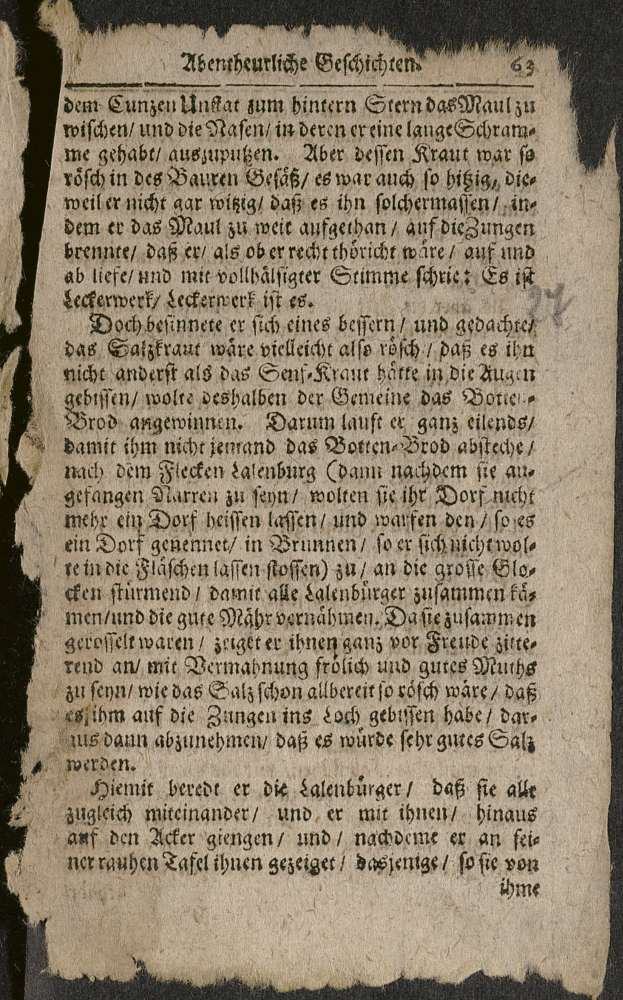 Abentheurliche Geschichten. 63
dem Cunzen Unflat zum hintern Stern das Maul zu
wischen/ und die Nasen/ in deren er eine lange Schram-
me gehabt/ auszuputzen. Aber dessen Kraut war so
rösch in des Bauren Gesäß/ es war auch so hitzig, die-
weil er nicht gar witzig/ daß es ihn solchermassen/ in-
dem er das Maul zu weit aufgethan/ auf die Zungen
brennte/ daß er/ als ob er recht thöricht wäre/ auf und
ab liefe/ und mit vollhälsigter Stimme schrie: Es ist
Leckerwerk/ Leckerwerk ist es.
Doch besinnete er sich eines bessern/ und gedachte/
das Salzkraut wäre vielleicht also rösch/ daß es ihn
nicht anderst als das Senf-Kraut hätte in die Augen
gebissen/ wolte deshalben der Gemeine das Botten-
Brod angewinnen. Darum lauft er ganz eilends/
damit ihm nicht jemand das Botten-Brod absteche/
nach dem Flecken Lalenburg (dann nachdem sie an-
gefangen Narren zu seyn/ wolten sie ihr Dorf nicht
mehr ein Dorf heissen lassen/ und warfen den/ so es
ein Dorf genennet/ in Brunnen/ so er sich nicht wol-
te in die Fläschen lassen stossen) zu/ an die grosse Glo-
cken stürmend/ damit alle Lalenbürger zusammen kä-
men/ und die gute Mähr vernähmen. Da sie zusammen
gerosselt waren/ zeiget er ihnen ganz vor Freude zitte-
rend an/ mit Vermahnung frölich und gutes Muths
zu seyn/ wie das Salz schon allbereit so rösch wäre/ daß
es, ihm auf die Zungen ins Loch gebissen habe/ dar-
aus dann abzunehmen/ daß es würde sehr gutes Salz
werden.
Hiemit beredt er die Lalenbürger/ daß sie alle
zugleich miteinander/ und er mit ihnen/ hinaus
auf den Acker giengen/ und/ nachdeme er an sei-
ner rauhen Tafel ihnen gezeiget/ dasjenige/ so sie von
ihme